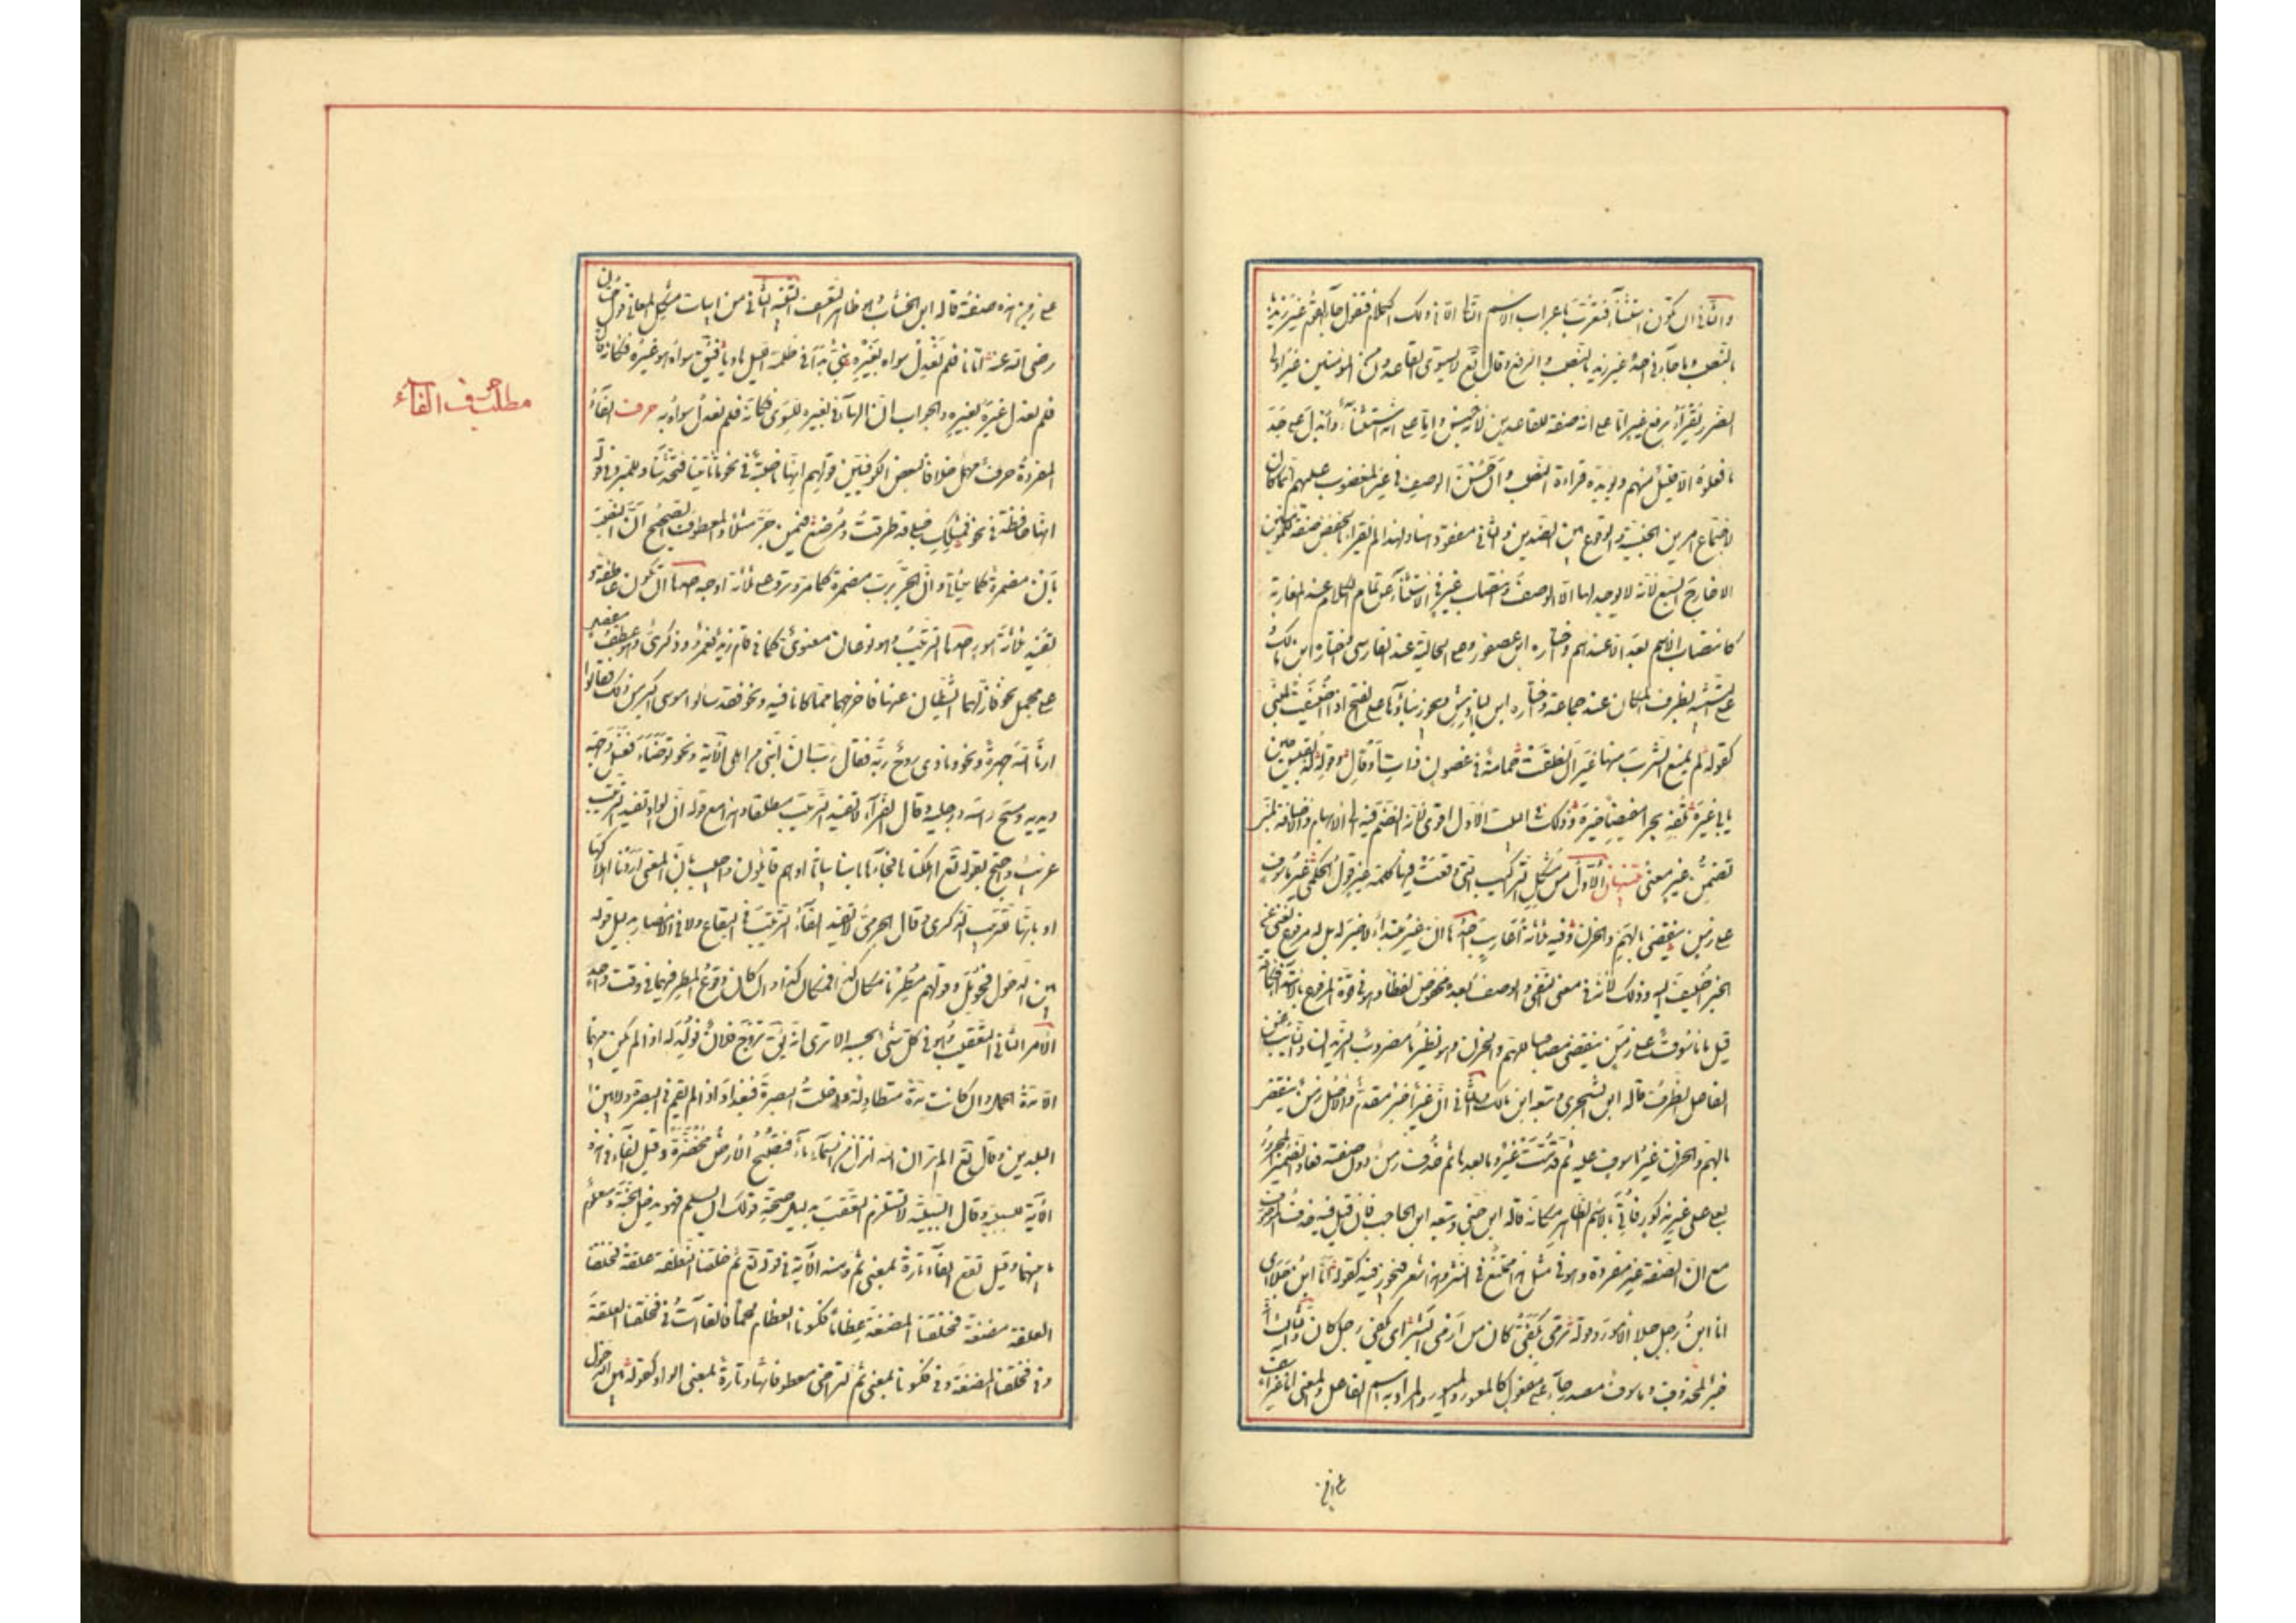 والثاني ان تكون استثناء فتعرب باعراب الاسم التالي الا في ذلك الكلام فتقول جاء القوم غير زيد
بالنصب وما جاءني احد غير زيد بالنصب والرفع وقال تع لا يستوي القاعدون من المؤمنين غير اولي
الضرر يقرأ برفع غير اما على انه صفة للقاعدون لانه جنس واما على انه استثناء وابدل على حد
ما فعلوه الا قليل منهم ويؤيده قراءة النصب وان حسن الوصف في غير المغضوب عليهم انما كان
لاجتماع امرين الجنسية والوقوع بين الضدين والثاني مفقود هنا ولهذا لم يقرأ بالخفض صفة للمؤمنين
الا خارج السبع لانه لا وجه لها الا الوصف وانتصاب غير في الاستثناء عن تمام الكلام عند المغاربة
كانتصاب الاسم بعد الا عندهم واختاره ابن عصفور وعلى الحالية عند الفارسي واختاره ابن مالك
على التشبيه بظرف المكان عند جماعة واختاره ابن الباذش ويجوز بناؤها على الفتح اذا اضيفت لمبني
كقوله لم يمنع الشرب منها غير ان نطقت حمامة في غصون ذات اوقال وقوله لذ بقيس حين
يابى غيره تلفه بحرا مفيضا خيره وذلك في البيت الاول اقوى لانه انضم فيه الى الابهام والاضافة لمبني
تضمن غير معنى الا تنبيهان الاول من مشكل التراكيب التي وقعت فيها كلمة غير قول الحكمي غير مأسوف
على زمن ينقضي بالهم والحزن وفيه ثلثة اعاريب احدها ان غير مبتدأ لا خبر له بل له مرفوع يغني عن
الخبر اضيف اليه وذلك لانه في معنى النفي والوصف بعده مخفوض لفظا وهو في قوة المرفوع بالابتداء فكانه
قيل ما مأسوف على زمن ينقضي مصاحبا للهم والحزن وهو نظير ما مضروب الزيدان والنائب عن
الفاعل الظرف قاله ابن الشجري وتبعه ابن مالك والثاني ان غير خبر مقدم والاصل زمن ينقضي
بالهم والحزن غير مأسوف عليه ثم قدمت غير وما بعدها ثم حذف زمن دون صفته فعاد الضمير المجرور
بعلى على غير مذكور فاتي بالاسم الظاهر مكانه قاله ابن جني وتبعه ابن الحاجب فان قيل فيه حذف الموصوف
مع ان الصفة غير مفردة وهو في مثل هذا ممتنع قلنا في النثر وهذا شعر فيجوز فيه كقوله انا ابن جلا اي
انا ابن رجل جلا الامور وقوله ترمي بكفي كان من ارمى البشر اي بكفي رجل كان والثالث انه
خبر لمحذوف ومأسوف مصدر جاء على مفعول كالمعسور والميسور والمراد به اسم الفاعل والمعنى انا غير آسف
على زمن
على زمن هذه صفته قاله ابن الخشاب وهو ظاهر التعسف التنبيه الثاني من ابيات مشكل المعاني قول حسان
رضي الله عنه اتانا فلم نعدل سواه بغيره نبي بدا في ظلمة الليل هاديا فيق سواه هو غيره فكانه قال
فلم نعدل غيره بغيره والجواب ان الهاء في بغيره للسوى فكانه فلم نعدل سواه به حرف الفاء
المفردة حرف مهمل خلافا لبعض الكوفيين في قولهم انها ناصبة في نحو ما تاتينا فتحدثنا وللمبرد في قوله
انها خافضة في نحو فمثلك حبلى قد طرقت ومرضع فيمن جر مثلا والمعطوف والصحيح ان النصب
بان مضمرة كما سيأتي وان الجر برب مضمرة كما مر وترد على ثلثة اوجه احدها ان تكون عاطفة و
تفيد ثلثة امور احدها الترتيب وهو نوعان معنوي كما في قام زيد فعمرو وذكري وهو عطف مفصل
على مجمل نحو فازلهما الشيطان عنها فاخرجهما مما كانا فيه ونحو فقد سألوا موسى اكبر من ذلك فقالوا
ارنا الله جهرة ونحو ونادى نوح ربه فقال رب ان ابني من اهلي الآية ونحو توضأ فغسل وجهه
ويديه ومسح رأسه ورجليه وقال الفراء لا تفيد الترتيب مطلقا وهذا مع قوله ان الواو تفيد الترتيب
غريب واحتج بقوله تع اهلكناها فجاءها بأسنا بياتا او هم قائلون واجيب بان المعنى اردنا اهلاكها
او بانها للترتيب الذكري وقال الجرمي لا تفيد الفاء الترتيب في البقاع ولا في الامطار بدليل قوله
بين الدخول فحومل وقولهم مطرنا مكان كذا فمكان كذا وان كان وقوع المطر فيهما في وقت واحد
الامر الثاني التعقيب وهو في كل شيء بحسبه الا ترى انه يق تزوج فلان فولد له اذا لم يكن بينهما
الا مدة الحمل وان كانت مدة متطاولة ودخلت البصرة فبغداد اذا لم تقم في البصرة ولا بين
البلدين وقال تع الم تر ان الله انزل من السماء ماء فتصبح الارض مخضرة وقيل الفاء في هذه
الآية للسببية وقال السببية لا تستلزم التعقيب بدليل صحة قولك ان يسلم فهو يدخل الجنة ومعلوم
ما بينهما وقيل تقع الفاء تارة بمعنى ثم ومنه الآية في قوله تع ثم خلقنا النطفة علقة فخلقنا
العلقة مضغة فخلقنا المضغة عظاما فكسونا العظام لحما فالفاآت في فخلقنا العلقة
وفي فخلقنا المضغة وفي فكسونا بمعنى ثم لتراخي معطوفاتها وتارة بمعنى الواو كقوله بين الدخول
مطلب حرف الفاء